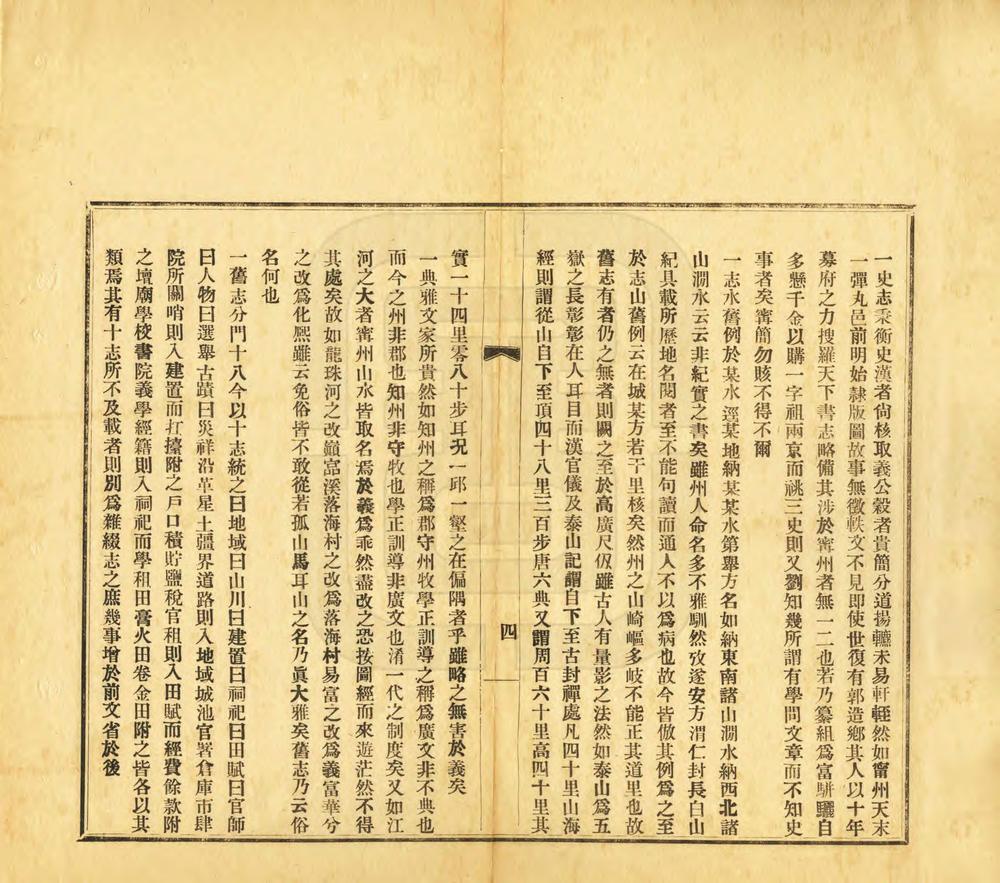 一史志秉衡史漢者尙核取義公穀者貴簡分道揚轣未易軒輊然如甯州天末
一彈丸邑前明始隸版圖故事無徵軼文不見即使世復有郭造鄉其人以十年
募府之力搜羅天下書志略備其涉於甯州者無一二也若乃纂組爲富駢驪自
多懸千金以購一字祖兩京而祧三史則又劉知幾所謂有學問文章而不知史
事者矣甯簡勿賅不得不爾
一志水舊例於某水逕某地納某某水第舉方名如納東南諸山澗水納西北諸
山澗水云云非紀實之書矣雖州人命名多不雅馴然攷遂安方渭仁封長白山
紀具載所歷地名閱者至不能句讀而通人不以爲病也故今皆倣其例爲之至
於志山舊例云在城某方若干里核矣然州之山崎嶇多岐不能正其道里也故
舊志有者仍之無者則闕之至於高廣尺仞雖古人有量影之法然如泰山爲五
嶽之長彰彰在人耳目而漢官儀及泰山記謂自下至古封禪處凡四十里山海
經則謂從山自下至頂四十八里三百步唐六典又謂周百六十里高四十里其
四
實一十四里零八十步耳况一邱一壑之在偏隅者乎雖略之無害於義矣
一典雅文家所貴然如知州之稱爲郡守州牧學正訓導之稱爲廣文非不典也
而今之州非郡也知州非守牧也學正訓導非廣文也淆一代之制度矣又如江
河之大者甯州山水皆取名焉於義爲乖然盡改之恐按圖經而來遊茫然不得
其處矣故如龍珠河之改巓富溪落海村之改爲落海村易富之改爲義富華兮
之改爲化熙雖云免俗皆不敢從若孤山馬耳山之名乃眞大雅矣舊志乃云俗
名何也
一舊志分門十八今以十志統之曰地域曰山川曰建置曰祠祀曰田賦曰官師
曰人物曰選舉古蹟曰災祥沿革星土疆界道路則入地域城池官署倉庫市肆
院所關哨則入建置而扛擡附之戶口積貯鹽稅官租則入田賦而經費餘款附
之壇廟學校書院義學經籍則入祠祀而學租田膏火田卷金田附之皆各以其
類焉其有十志所不及載者則別爲雜綴志之庶幾事增於前文省於後